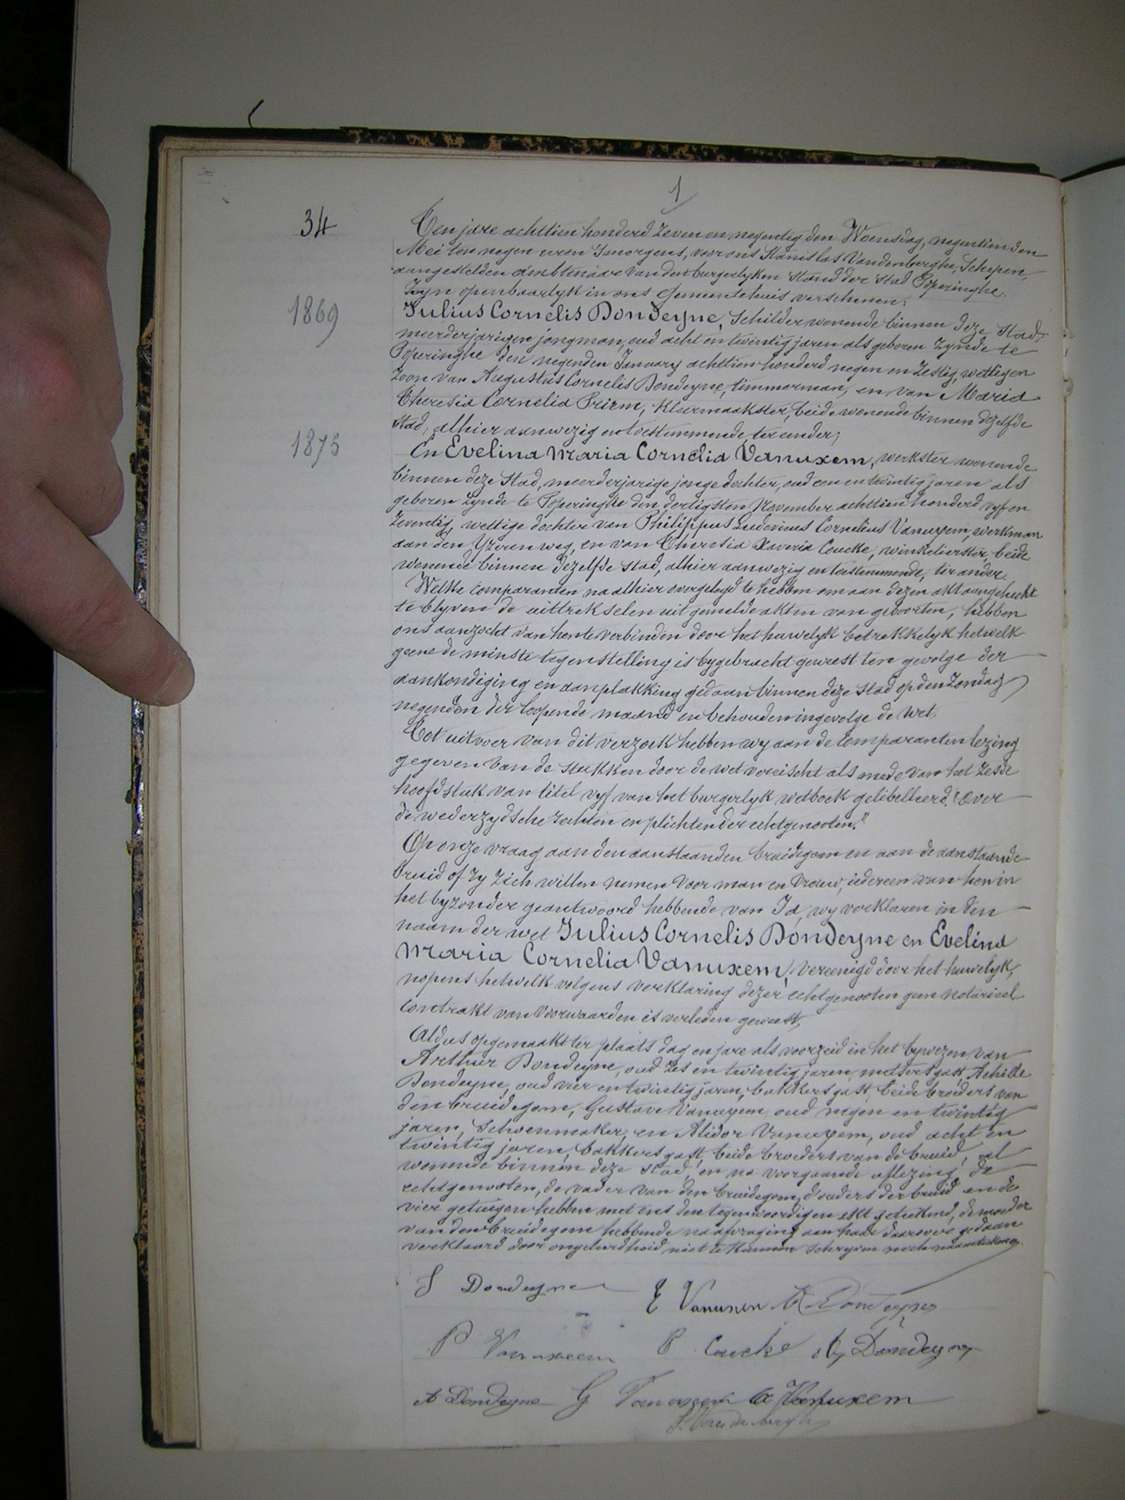 1
34
Ten jare achttien honderd zeven en negentig den Woensdag, negentienden
Mei ten negen uren Smorgens, voor ons Stanislas Vandenberghe, Schepen,
aangestelden ambtenaar van den burgerlyken stand der stad Poperinghe
Zyn openbaarlyk in ons gemeentehuis verschenen:
1869
Julius Cornelis Dondeyne, Schilder wonende binnen deze stad,
meerderjarigen jongman, oud acht en twintig jaren als geboren zynde te
Poperinghe den negenden January achttien honderd negen en zestig, wettigen
zoon van Augustus Cornelis Dondeyne, timmerman, en van Maria
Theresia Cornelia Priem, kleermaakster, beide wonende binnen dezelfde
stad, alhier aanwezig en toestemmende ter eender;
1875
En Evelina Maria Cornelia Vanuxem, werkster wonende
binnen deze stad, meerderjarige jonge dochter, oud een en twintig jaren als
geboren zynde te Poperinghe den dertigsten November achttien honderd vyf en
zeventig, wettige dochter van Philippus Ludovicus Cornelius Vanuxem, werkman
aan den Yzeren weg, en van Theresia Xaveria Coucke, winkelierster, beide
wonende binnen dezelfde stad, alhier aanwezig en toestemmende, ter ander.
Welke comparanten na alhier overgelegd te hebben om aan dezen akt aangehecht
te blyven de uittrekselen uit gemelde akten van geboorten, hebben
ons aanzocht van hen te verbinden door het huwelyk betrekkelyk hetwelk
geene de minste tegenstelling is bygebracht geweest ten gevolge der
aankondiging en aanplakking gedaan binnen deze stad op den Zondag
negenden der loopende maand en behouden ingevolge de Wet.
Tot uitvoer van dit verzoek hebben wy aan de Comparanten lezing
gegeven van de stukken door de wet vereischt als mede van het zesde
hoofdstuk van titel vyf van het burgerlyk wetboek gelibelleerd, "Over
de wederzydsche rechten en plichten der echtgenooten."
Op onze vraag aan den aanstaanden bruidegom en aan de aanstaande
bruid of zy zich willen nemen voor man en vrouw, iedereen van hen in
het byzonder geantwoord hebbende van Ja, wy verklaren in den
naam der wet Julius Cornelis Dondeyne en Evelina
Maria Cornelia Vanuxem, vereenigd door het huwelyk,
nopens hetwelk volgens verklaring dezer echtgenooten geen notarieel
contrakt van voorwaarden is verleden geweest,
Aldus opgemaakt ter plaats dag en jare als voorzeid in het bywezen van
Arthur Dondeyne, oud zes en twintig jaren, metsers gast, Achille
Dondeyne, oud vier en twintig jaren, bakkers gast, beide broeders van
den bruidegom, Gustave Vanuxem oud negen en twintig
jaren, Schoenmaker, en Alidor Vanuxem, oud acht en
twintig jaren, bakkers gast, beide broeders van de bruid, al
wonende binnen deze stad, en na voorgaande aflezing, de
echtgenooten, de vader van den bruidegom, d'ouders der bruid en de
vier getuigen hebben met ons den tegenwoordigen akt geteekend, de moeder
van den bruidegom hebbende na afvraging aan haar daarover gedaan
verklaard door ongeleerdheid niet te kunnen schryven noch naamteekenen.
J Dondeyne E Vanuxem Dondeyne
P Vanuxem Coucke Dondeyne
A Dondeyne G Vanuxem a Vanuxem
S. Vandenberghe